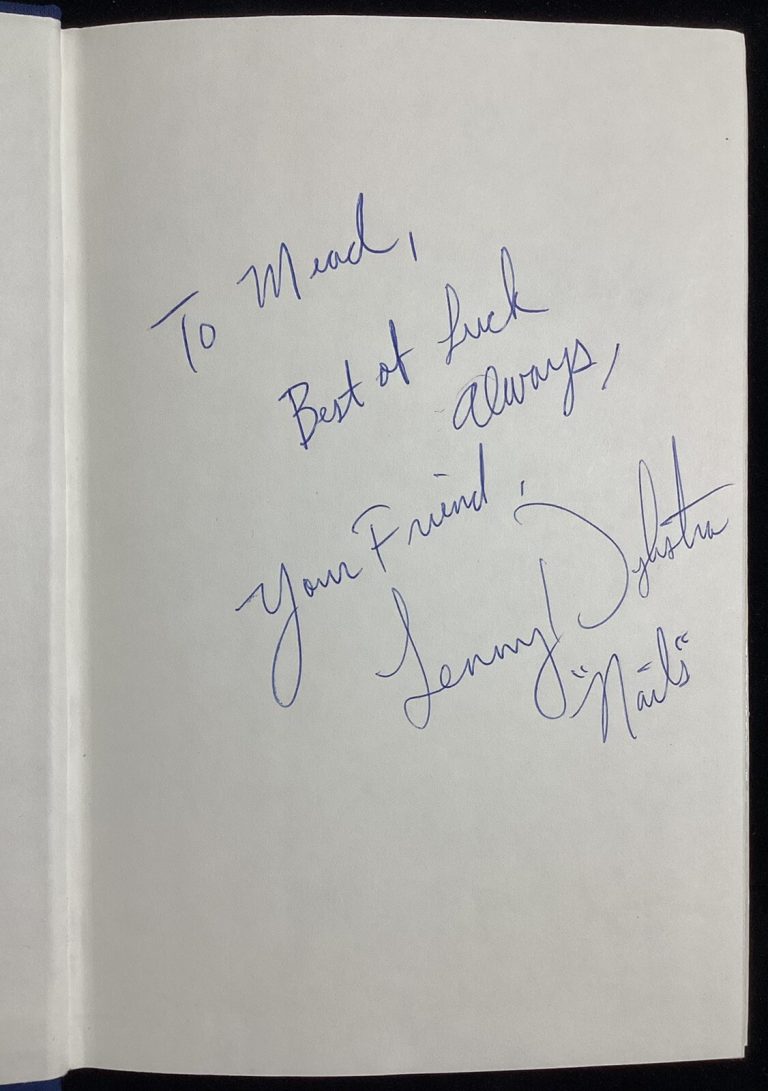 To Mead,
Best of Luck
Always,
Your Friend,
Lenny Dykstra
"Nails"